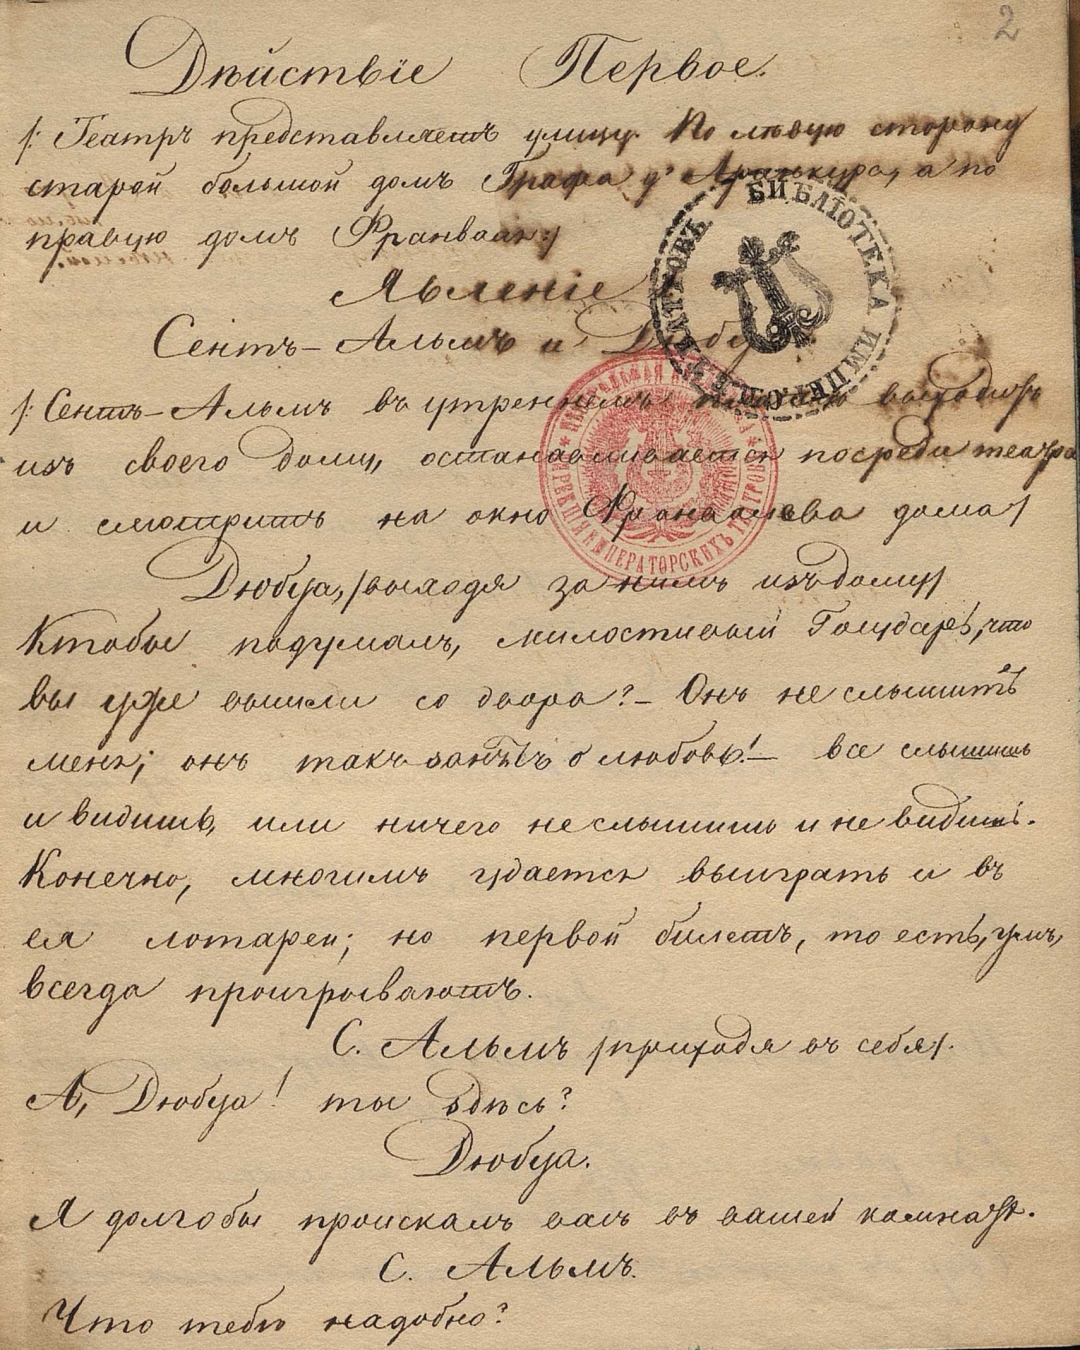 2
Дѣйствіе Первое.
/: Театръ представляетъ улицу. По лѣвую сторону
старой большой домъ Графа д'Аранкура, а по
правую домъ Франваля:/
Явленіе
Сентъ-Альмъ и Дюбуа
/: Сентъ-Альмъ въ утреннемъ выходитъ
изъ своего дому, останавливается посреди театра
и смотритъ на окно Франвалева дома/
Дюбуа, /выходя за нимъ изъ дому/
Ктобы подумалъ, милостивый Государь, что
вы уже вышли со двора? – Онъ не слышитъ
меня; онъ такъ занятъ о любовь! – все слышишь
и видишь, или ничего не слышишь и не видишь.
Конечно, многимъ удается выиграть и въ
ея лотареи; но первой билетъ, то есть, умъ,
всегда проигрываютъ.
С. Альмъ /приходя въ себя/.
А, Дюбуа! ты здѣсь?
Дюбуа.
Я долгобы проискалъ васъ въ вашей комнатѣ.
С. Альмъ.
Что тебѣ надобно?
БИБЛІОТЕКА ИМПЕРАТ. ТЕАТРОВЪ
ЦЕНТРАЛЬНАЯ БИБЛІОТЕКА
ДИРЕКЦІЯ ИМПЕРАТОРСКИХЪ ТЕАТРОВЪ